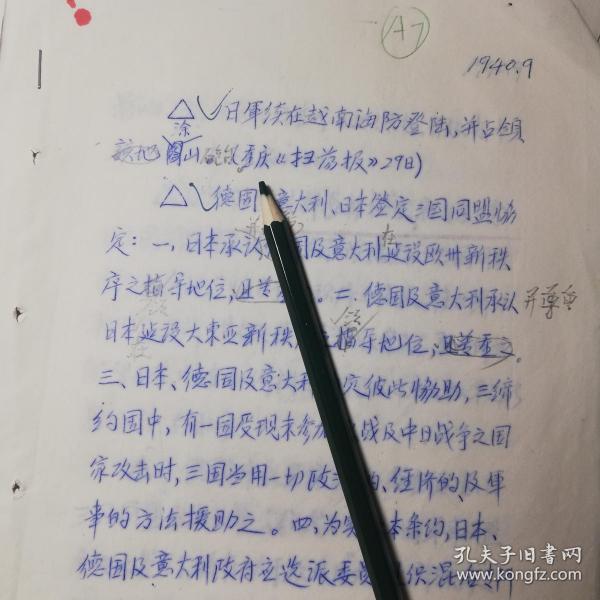 A7
1940.9
△✓日軍续在越南海防登陆,并占领
涂
该地山砲(重庆《扫荡报》29日)
△✓德国 意大利、日本签定三国同盟协
定:一,日本承认 国及意大利建设欧州新秩
在
序之指导地位,且 。二、德国及意大利承认并尊重
领
日本建设大東亚新秩 指导地位,且尊重之。
领
三、日本、德国及意大利 定彼此协助,三缔
约国中,有一国受现未参加 战及中日战争之国
家攻击时,三国当用一切政 的、经济的、及軍
事的方法援助之。四、为实 本条约,日本、
德国及意大利政府立选派委员 织混
孔夫子旧書网
www.kongfz.com